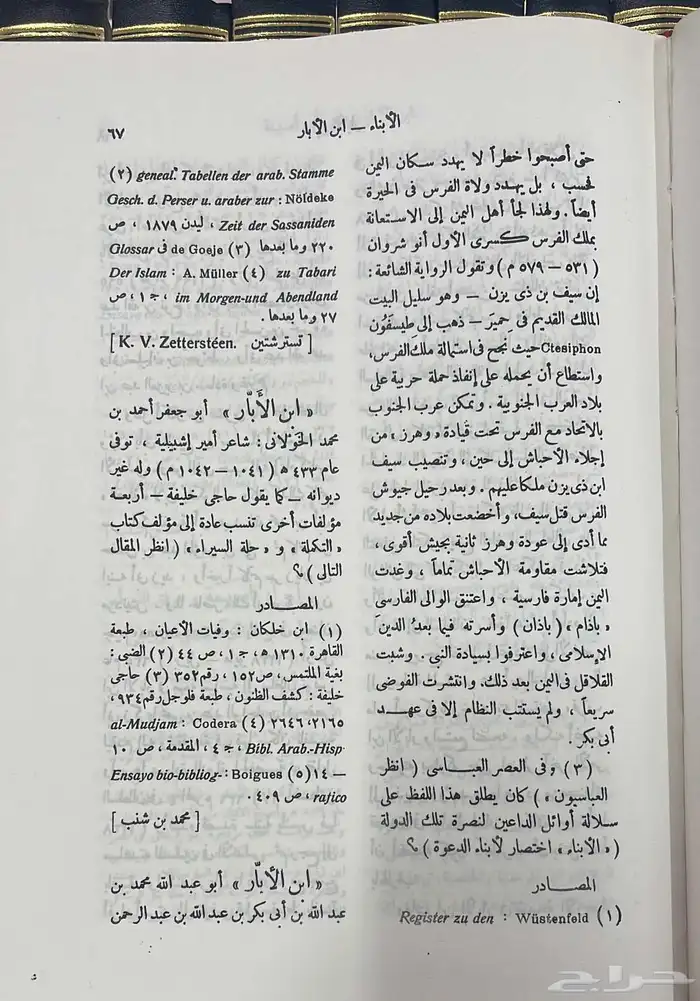 الأبناء — ابن الأبار
٦٧
حتى أصبحوا خطراً لا يهدد سكان اليمن
فحسب ، بل يهدد ولاة الفرس فى الحيرة
أيضاً . ولهذا لجأ أهل اليمن إلى الاستعانة
بملك الفرس كسرى الأول أنو شروان
( ٥٣١ — ٥٧٩ م ) وتقول الرواية الشائعة :
إن سيف بن ذى يزن — وهو سليل البيت
المالك القديم فى حِميَر — ذهب إلى طيسَفُون
Ctesiphon حيث نجح فى استمالة ملك الفرس،
واستطاع أن يحمله على إنفاذ حملة حربية على
بلاد العرب الجنوبية . وتمكن عرب الجنوب
بالاتحاد مع الفرس تحت قيادة « وهرز » من
إجلاء الأحباش إلى حين ، وتنصيب سيف
ابن ذى يزن ملكا عليهم . وبعد رحيل جيوش
الفرس قتل سيف، وأخضعت بلاده من جديد
مما أدى إلى عودة وهرز ثانية بجيش أقوى ،
فتلاشت مقاومة الأحباش تماماً ، وغدت
اليمن إمارة فارسية ، واعتنق الوالى الفارسى
« باذام » ( باذان ) وأسرته فيما بعدُ الدينَ
الإسلامى ، واعترفوا بسيادة النبى . وشبت
القلاقل فى اليمن بعد ذلك. وانتشرت الفوضى
سريعاً ، ولم يستتب النظام إلا فى عهد
أبى بكر .
( ٣ ) وفى العصر العباسى ( انظر
العباسيون » ) كان يطلق هذا اللفظ على
سلالة أوائل الداعين لنصرة تلك الدولة
( « الأبناء » اختصار لأبناء الدعوة ) ؟
المصادر
( ١ ) Wüstenfeld : Register zu den
geneal. Tabellen der arab. Stamme ( ٢ )
Nöldeke : Gesch. d. Perser u. araber zur
Zeit der Sassaniden ، ليدن ١٨٧٩ ، ص
٢٢٠ وما بعدها ( ٣ ) de Goeje فى Glossar
zu Tabari ( ٤ ) A. Müller : Der Islam
im Morgen-und Abendland ، ج ١ ، ص
٢٧ وما بعدها .
[ تسترشتين K. V. Zetterstéen. ]
« ابن الأَبّار » أبو جعفر أحمد بن
محمد الخَوْلانى : شاعر أمير إشبيلية ، توفى
عام ٤٣٣ ه ( ١٠٤١ — ١٠٤٢ م ) وله غير
ديوانه — كما يقول حاجى خليفة — أربعة
مؤلفات أخرى تنسب عادة إلى مؤلف كتاب
« التكملة » و « حلة السيراء » ( انظر المقال
التالى ) ؟
المصادر
( ١ ) ابن خلكان : وفيات الأعيان ، طبعة
القاهرة ١٣١٠ ه ، ج ١ ، ص ٤٤ ( ٢ ) الضبى :
بغية الملتمس ، ص ١٥٢ ، رقم ٣٥٢ ( ٣ ) حاجى
خليفة : كشف الظنون ، طبعة فلوجل رقم ٩٣٤ ،
٢١٦٥ ، ٢٦٤٦ ( ٤ ) Codera : al-Mudjam
Bibl. Arab.-Hisp ، ج ٤ ، المقدمة ، ص ١٠
— ١٤ ( ٥ ) Boigues : Ensayo bio-bibliog-
rafico ، ص ٤٠٩ .
[ محمد بن شنب ]
« ابن الأَبّار » أبو عبد الله محمد بن
عبد الله بن أبى بكر بن عبد الله بن عبد الرحمن
حراج